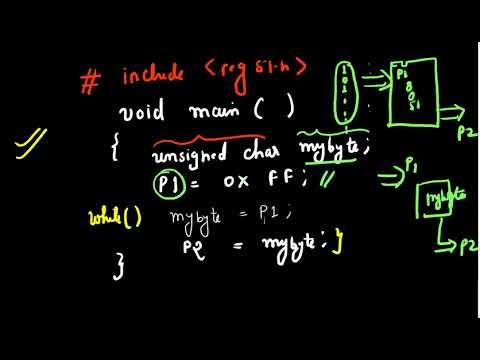 # include <reg 51.h>
void main ( )
{ unsigned char mybyte;
P1 = 0X FF; //
while() mybyte = P1;
P2 = mybyte; }
}
1
0
1
0
P1
8
0
51
P2
P1
mybyte
P2